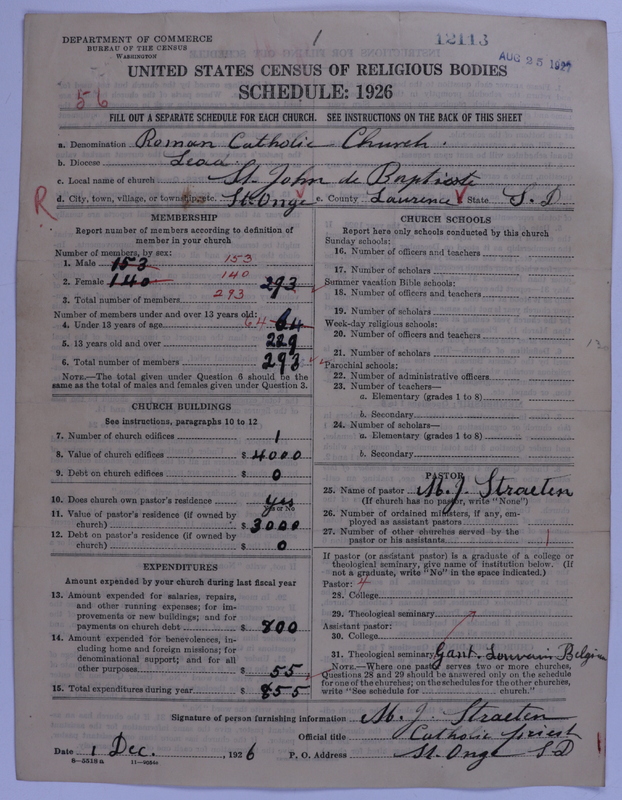 DEPARTMENT OF COMMERCE
BUREAU OF THE CENSUS
WASHINGTON
1
12113
AUG 25 1927
UNITED STATES CENSUS OF RELIGIOUS BODIES
SCHEDULE: 1926
56
FILL OUT A SEPARATE SCHEDULE FOR EACH CHURCH. SEE INSTRUCTIONS ON THE BACK OF THIS SHEET
a. Denomination Roman Catholic Church.
b. Diocese Lead
c. Local name of church St. John de Baptiste
R
d. City, town, village, or township, etc. St. Onge e. County Lawrence State S. D
MEMBERSHIP
Report number of members according to definition of
member in your church
Number of members, by sex:
1. Male 153 153
2. Female 140 140 293
3. Total number of members 293
Number of members under and over 13 years old:
4. Under 13 years of age 64 64
5. 13 years old and over 229
6. Total number of members 293
NOTE.—The total given under Question 6 should be the
same as the total of males and females given under Question 3.
CHURCH BUILDINGS
See instructions, paragraphs 10 to 12
7. Number of church edifices 1
8. Value of church edifices $ 4000
9. Debt on church edifices $ 0
10. Does church own pastor's residence yes
Yes or No
11. Value of pastor's residence (if owned by
church) $ 3000
12. Debt on pastor's residence (if owned by
church) $ 0
EXPENDITURES
Amount expended by your church during last fiscal year
13. Amount expended for salaries, repairs,
and other running expenses; for im-
provements or new buildings; and for
payments on church debt $ 800
14. Amount expended for benevolences, in-
cluding home and foreign missions; for
denominational support; and for all
other purposes $ 55
15. Total expenditures during year $ 855
CHURCH SCHOOLS
Report here only schools conducted by this church
Sunday schools:
16. Number of officers and teachers
17. Number of scholars
Summer vacation Bible schools:
18. Number of officers and teachers
19. Number of scholars
Week-day religious schools:
20. Number of officers and teachers
21. Number of scholars
Parochial schools:
22. Number of administrative officers
23. Number of teachers—
a. Elementary (grades 1 to 8)
b. Secondary
24. Number of scholars—
a. Elementary (grades 1 to 8)
b. Secondary
PASTOR
25. Name of pastor M. J. Straeten
(If church has no pastor, write "None")
26. Number of ordained ministers, if any, em-
ployed as assistant pastors
27. Number of other churches served by the
pastor or his assistants 1
If pastor (or assistant pastor) is a graduate of a college or
theological seminary, give name of institution below. (If
not a graduate, write "No" in the space indicated.)
Pastor:
28. College
29. Theological seminary
Assistant pastor:
30. College
31. Theological seminary Gant. Louvain Belgium
NOTE.—Where one pastor serves two or more churches,
Questions 28 and 29 should be answered only on the schedule
for one of the churches; on the schedules for the other churches,
write "See schedule for church."
Signature of person furnishing information M. J. Straeten
Official title Catholic priest
Date 1 Dec. , 1926 P. O. Address St. Onge SD
8—5518 a